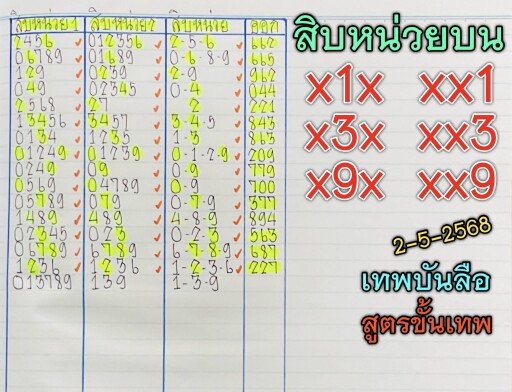 สิบหน่วย1 สิบหน่วย2 สิบหน่วย ออก
2456 012356 2-5-6 662
06789 01689 0-6-8-9 665
129 0239 2-9 962
049 02345 0-4 044
2568 27 2 221
13456 3457 3-4-5 843
0134 1235 1-3 863
01249 01239 0-1-2-9 209
0249 09 0-9 779
0569 04789 0-9 700
05789 079 0-7-9 377
1489 489 4-8-9 894
02345 023 0-2-3 563
06789 6789 6-7-8-9 687
1236 1236 1-2-3-6 227
013789 139 1-3-9
สิบหน่วยบน
x1x xx1
x3x xx3
x9x xx9
2-5-2568
เทพบันลือ
สูตรขั้นเทพ